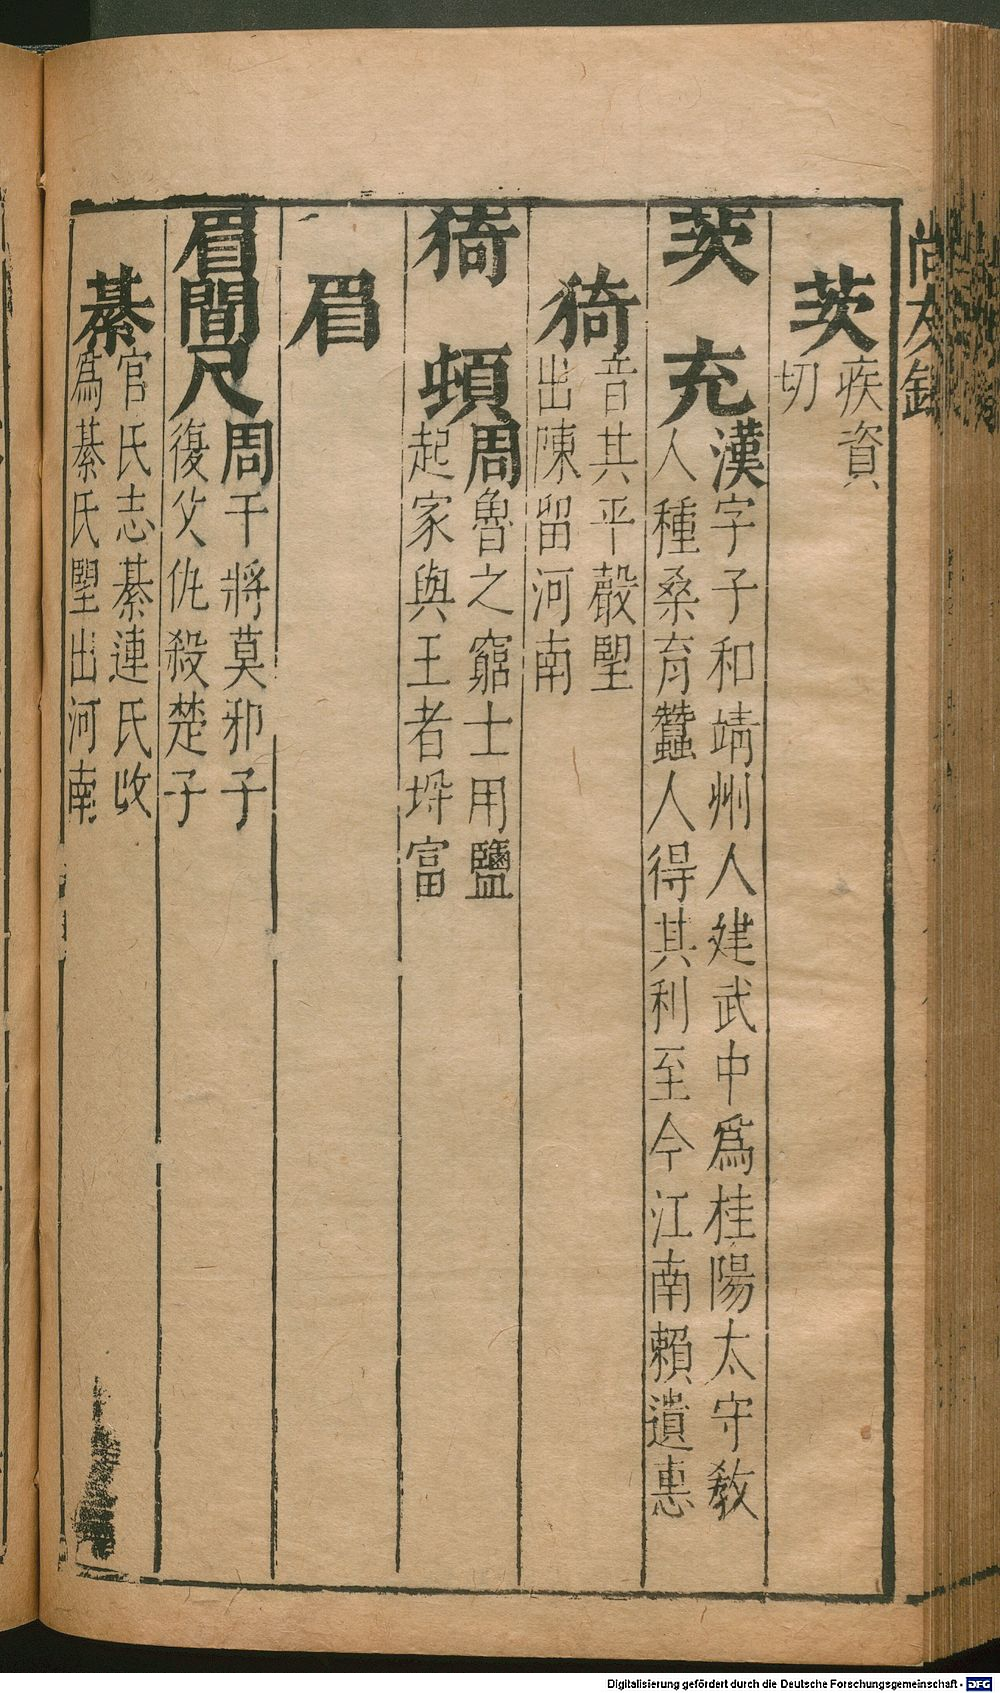 尚友錄
茨 疾資
切
茨充 漢字子和靖州人建武中爲桂陽太守敎
人種桑育蠶人得其利至今江南賴遺惠
猗 音其平聲朢
出陳留河南
猗頓 周魯之窮士用鹽
起家與王者埒富
眉
眉間尺 周干將莫邪子
復父仇殺楚子
綦 官氏志綦連氏改
爲綦氏朢出河南
Digitalisierung gefördert durch die Deutsche Forschungsgemeinschaft - DFG